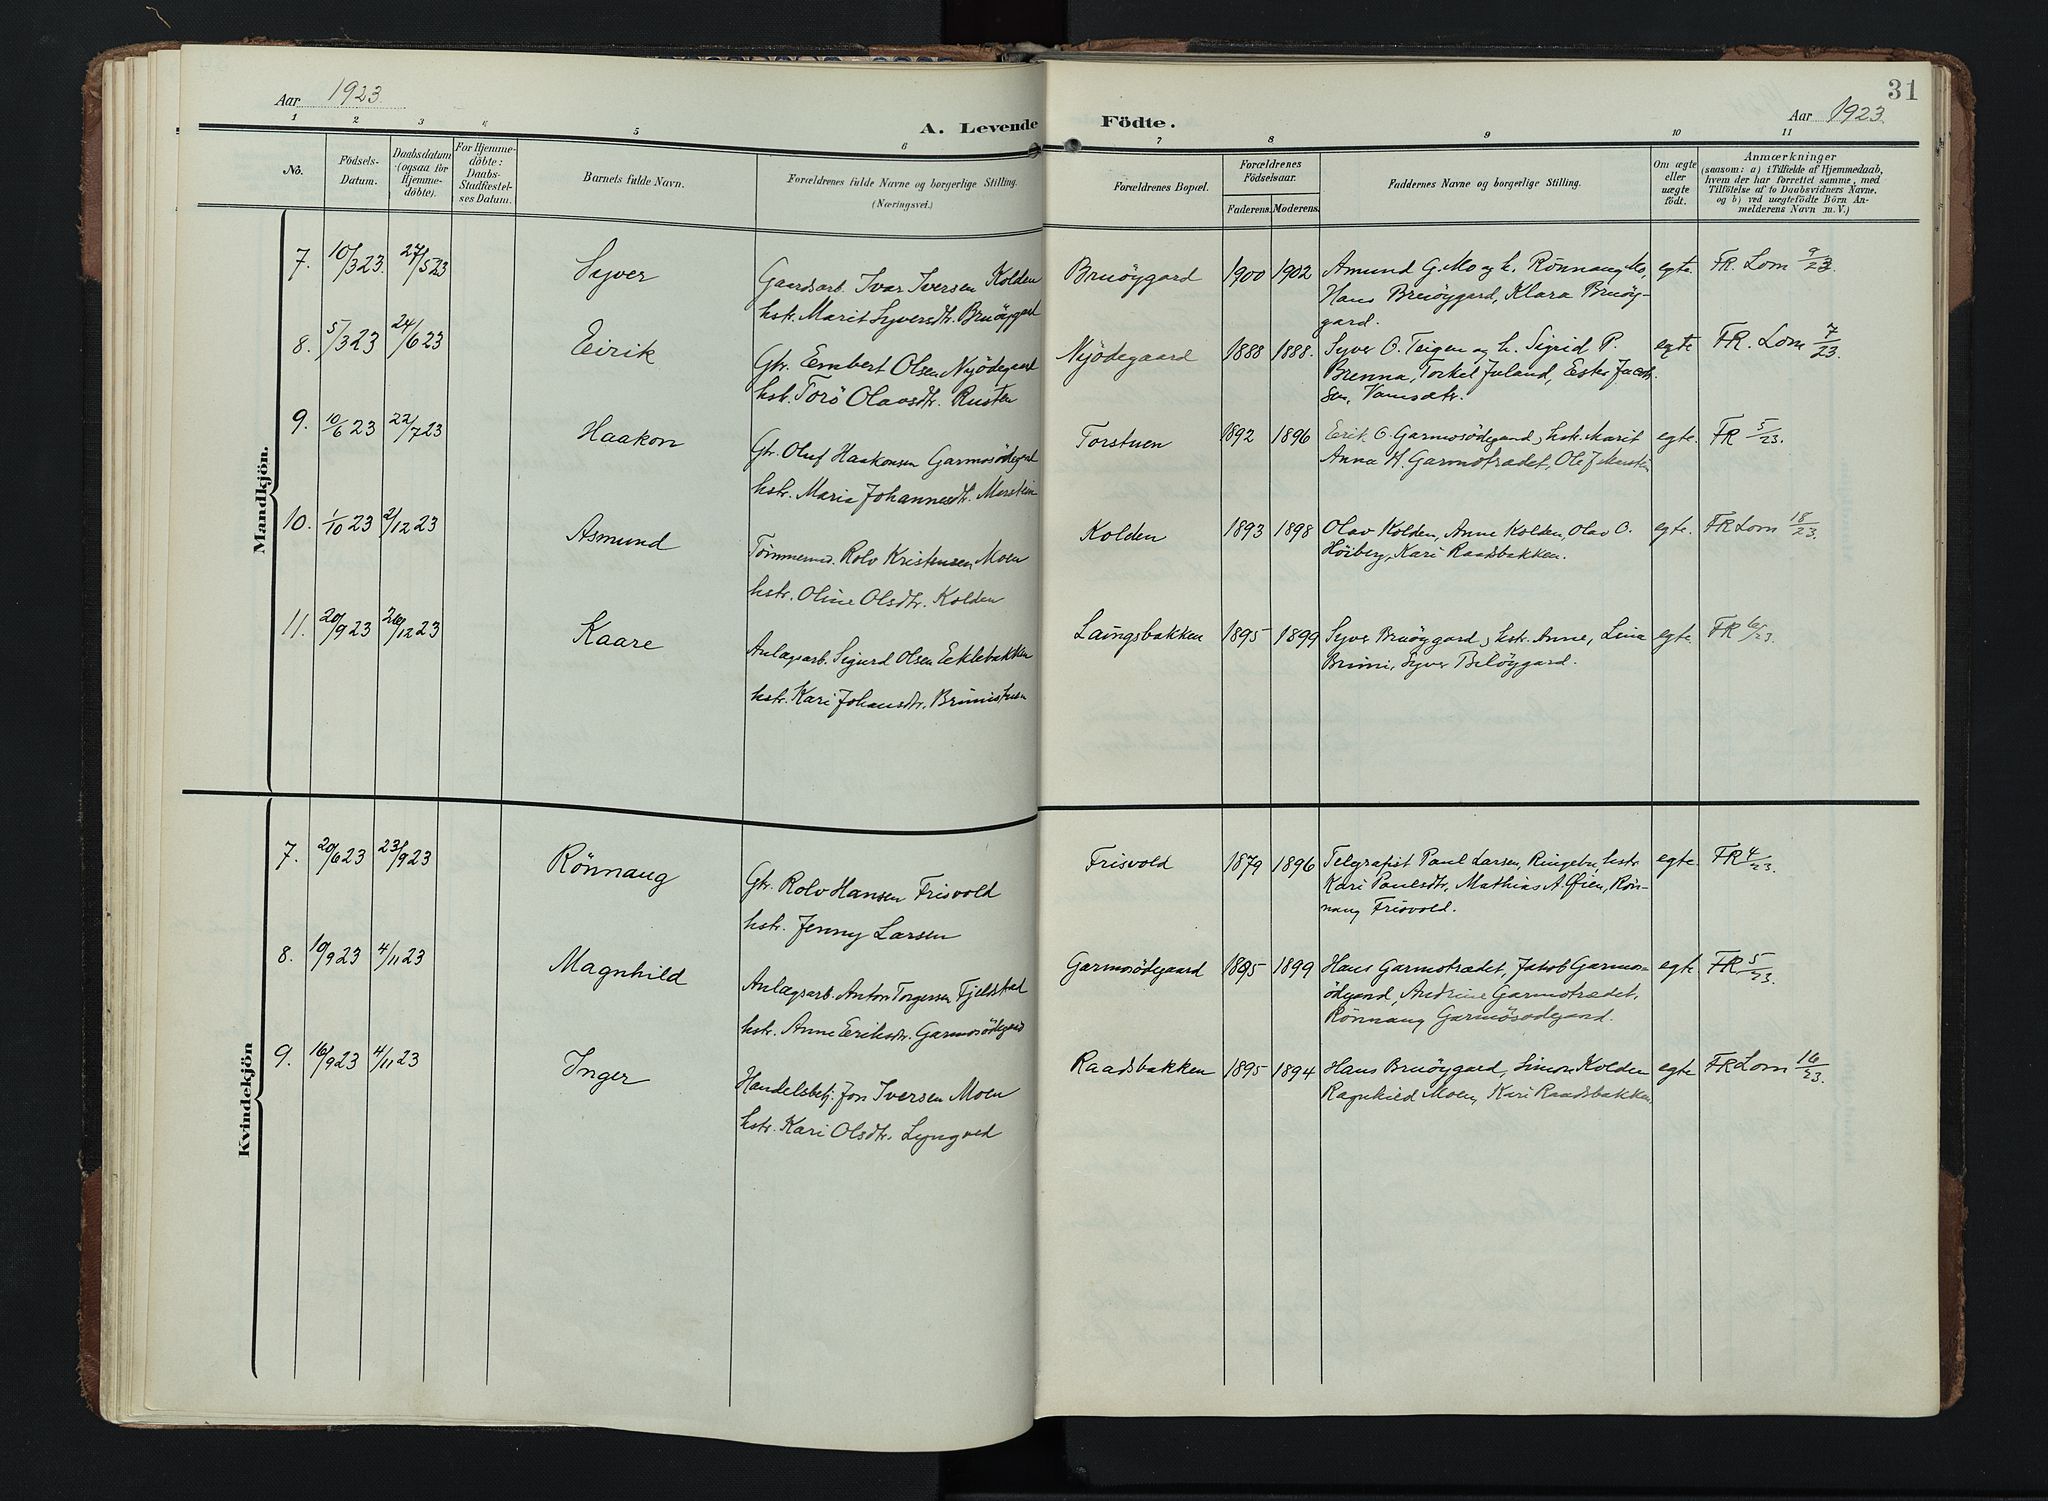 Aar 1923
31
Aar 1923
A. Levende Födte.
1 2 3 4 5 6 7 8 9 10 11
No.
Födsels-
Datum.
Daabsdatum
(ogsaa for
Hjemme-
döbte).
For Hjemme-
döbte:
Daabs-
Stadfæstel-
ses Datum.
Barnets fulde Navn.
Forældrenes fulde Navne og borgerlige Stilling.
(Næringsvei.)
Forældrenes Bopæl.
Forældrenes
Födselsaar.
Faderens. Moderens.
Faddernes Navne og borgerlige Stilling.
Om ægte
eller
uægte
födt.
Anmærkninger
(saasom: a) i Tilfælde af Hjemmedaab,
hvem der har forrettet samme, med
Tilföielse af to Daabsvidners Navne,
og b) ved uægtefödte Börn An-
melderens Navn m. V.)
Mandkjön.
7. 10/3 23. 27/5 23 Syver
Gaardsarb. Ivar Iversen Kolden
hstr. Marit Syversdtr. Bruöygard
Bruöygard 1900 1902
Amund G. Mo og h. Rönnaug Mo,
Hans Bruöygard, Klara Bruöy-
gard.
egte. FR. Lom 9/23.
8. 5/3 23 24/6 23 Eirik
Gbr. Embert Olsen Nyödegaard
hst. Torö Olavsdtr. Rusten
Nyödegaard 1888 1888.
Syver O. Teigen og h. Sigrid P.
Brenna, Torkel Juland, Ester Jacob-
sen,
egte FR. Lom 7/23.
9. 10/6 23 22/7 23 Haakon
Gbr. Oluf Haakonsen Garmosödegard
hstr. Maria Johannesdtr. Marstein
Torstuen 1892 1896
Erik O. Garmosödegard, hstr. Marit
Anna H. Garmotrædet, Ole J. Marstein
egte. FR 5/23.
10. 1/10 23 2/12 23 Asmund
Tömmerm. Rolv Kristensen Moen
hstr. Oline Olsdtr. Kolden
Kolden 1893 1898
Olav Kolden, Anne Kolden, Olav O.
Höiberg, Kari Raadsbakken.
egte. FR Lom 18/23.
11. 20/9 23 26/12 23 Kaare
Anlægsarb. Sigurd Olsen Eeklebakken
hstr. Kari Johansdtr. Brimistuen
Laingsbakken 1895 1899
Syver Bruöygard, hstr. Anne, Lina
Brimi, Syver Bruöygard.
egte. FR 6/23.
Kvindekjön
7. 20/6 23 23/9 23 Rönnaug
Gbr. Rolv Hansen Frisvold
hstr. Jenny Larsen
Frisvold 1879 1896
Telgrafist Paul Larsen, Ringebu, hstr
Kari Paulsdtr, Mathias A. Øien, Rön-
naug Frisvold.
egte. FR 4/23.
8. 10/9 23 4/11 23 Magnhild
Anlægsarb. Anton Torgersen Fjeldstad
hstr. Anne Eriksdtr. Garmosödegard
Garmosödegaard 1895 1899
Hans Garmotrædet, Jakob Garmos-
ödegard, Andrine Garmotrædet,
Rönnaug Garmösodegard.
egte FR 5/23.
9. 16/9 23 4/11 23 Inger
Handelsbetj. Jon Iversen Moen
hstr. Kari Olsdtr. Lyngved
Raadsbakken 1895 1894
Hans Bruöygard, Simon Kolden
Ragnhild Moen, Kari Raadsbakken.
egte FR Lom 16/23.